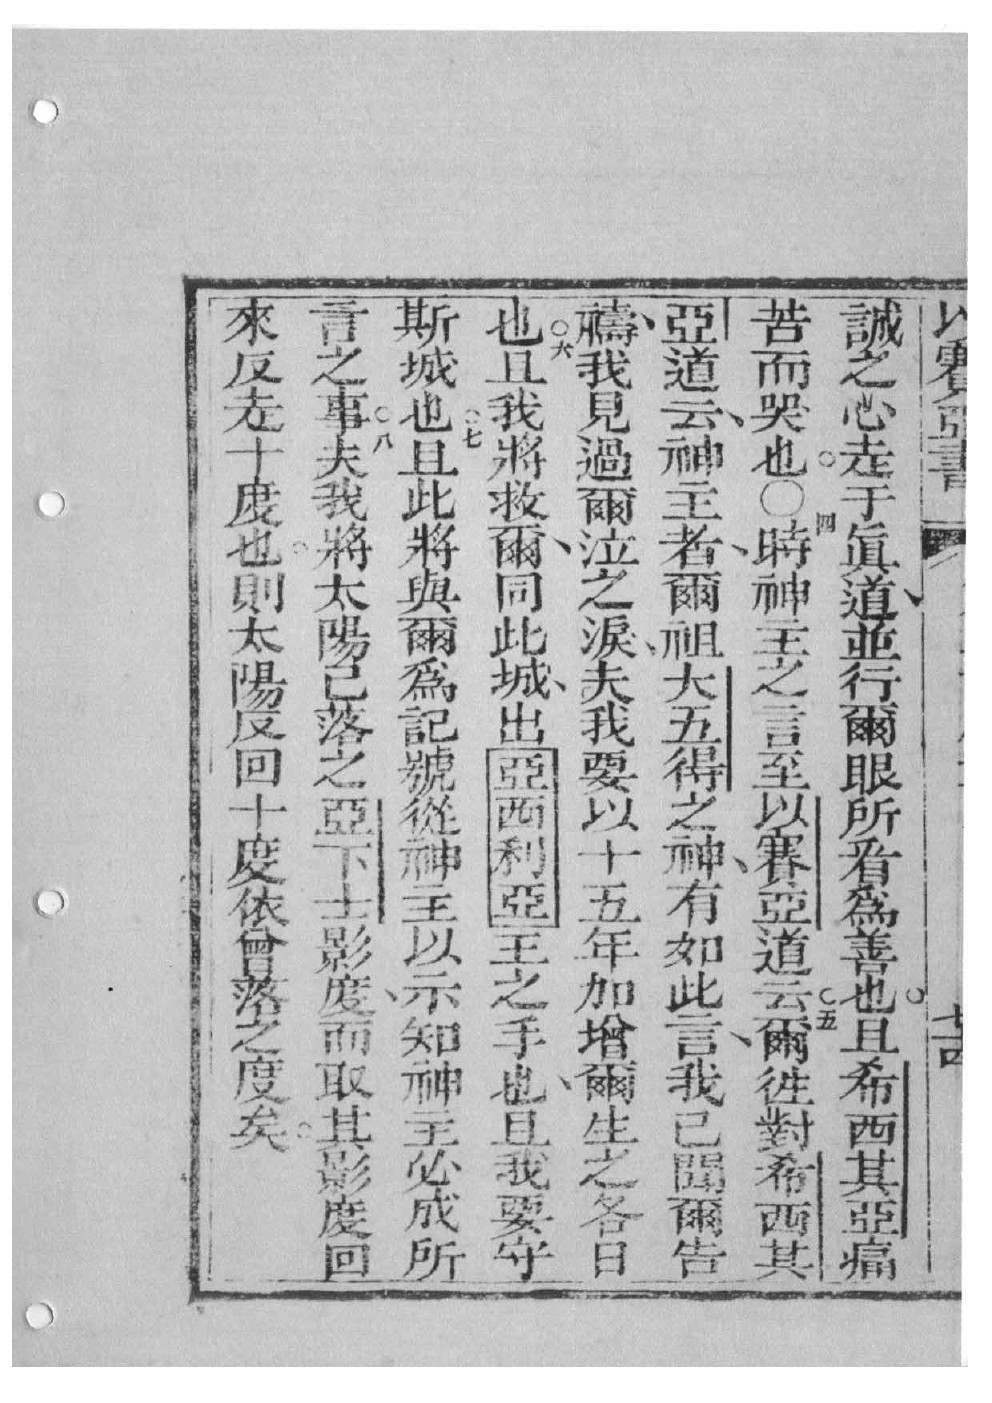 以賽亞書
七四
誠之心走于眞道並行爾眼所看爲善也且希西其亞痛
苦而哭也○四時神主之言至以賽亞道云五爾徃對希西其
亞道云神主者爾祖大五得之神有如此言我已聞爾告
禱我見過爾泣之淚夫我要以十五年加增爾生之各日
也六且我將救爾同此城出亞西利亞王之手也且我要守
斯城也七且此將與爾爲記號從神主以示知神主必成所
言之事八夫我將太陽已落之亞下士影度而取其影度回
來反走十度也則太陽反回十度依曾落之度矣